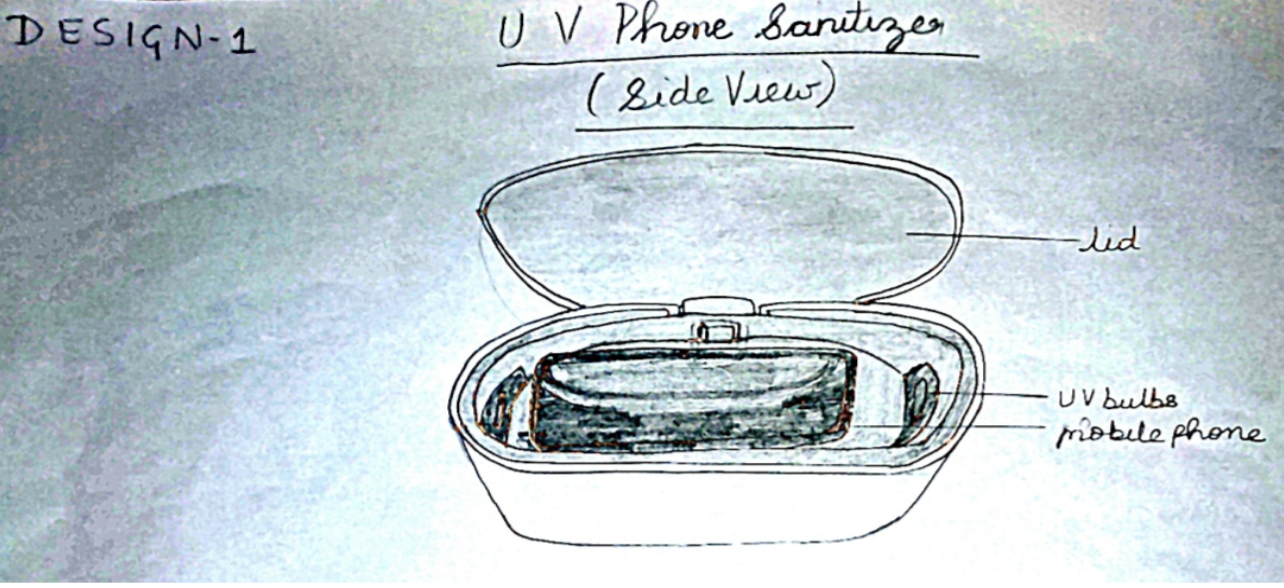 DESIGN-1
UV Phone Sanitizer
(Side View)
lid
UV bulbs
mobile phone